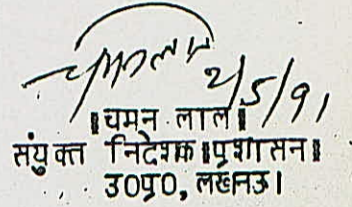 चमनलाल 2/5/91
॥चमन लाल॥
संयुक्त निदेशक॥प्रशासन॥
उ०प्र०, लखनऊ।